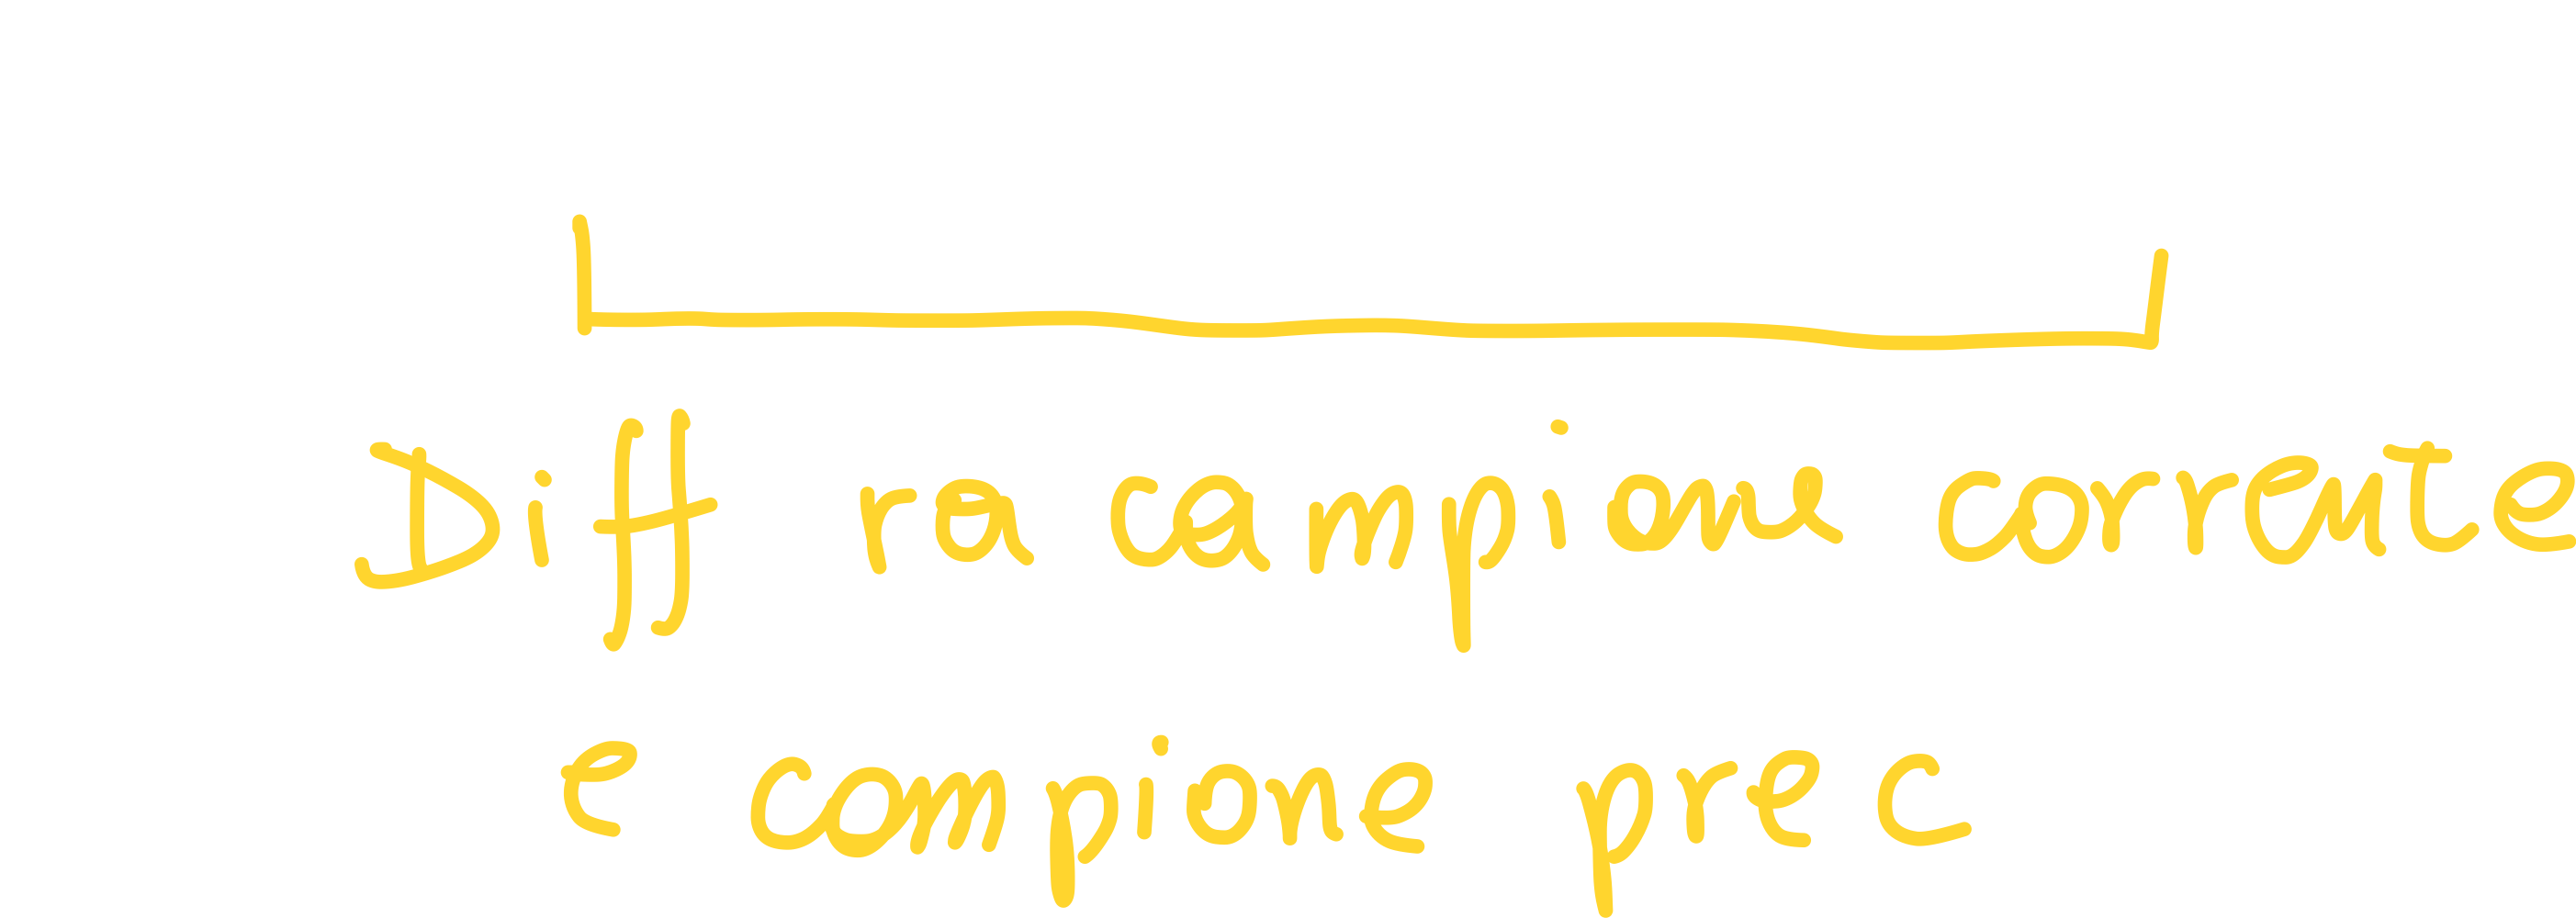 Diff ra campione corrente
e campione prec